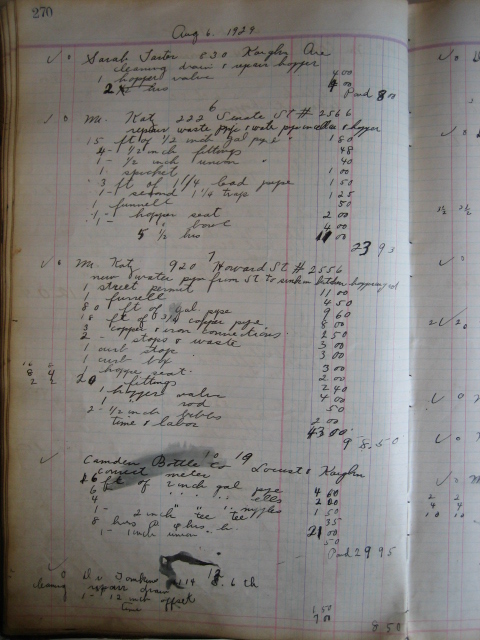 270
Aug 6. 1929
Sarah 830 Kaighn Ave
cleaning drain & repair hopper
1 hopper valve 4 00
2 hrs 4 00
Paid 8 00
6
Mr. Katz 222 Senate St # 2566
repair waste pipe & water pipe in cellar & hopper
15 ft of 1/2 inch gal pipe 1 80
4 - 1/2 inch fittings 48
1 - 1/2 inch union 40
1 - spicket 1 00
3 ft of 1 1/4 lead pipe 1 50
1 - second 1 1/4 trap 1 25
1 funnell 50
1 - hopper seat 2 00
1 " bowl 4 00
5 1/2 hrs 11 00
23 93
7
Mr. Katz 920 Howard St # 2556
new water pipe from St to sink in kitchen hopper yd
1 street permit 11 00
1 funell 4 50
80 ft of gal pipe 9 60
18 ft of 3/4 copper pipe 8 00
3 copper & iron connections 2 50
2 - stops & waste 3 00
1 curb stop 3 00
1 curb box 3 00
1 hopper seat 2 00
20 fittings 2 40
1 hopper valve 4 00
1 " rod 50
2 - 1/2 inch bibbs 2 00
time & labor 43 00
95.50
10 19
Camden Bottle Co Locust & Kaighn
connect meter
ft of 2 inch gal pipe 4 60
4 " " " ells 2 00
4 " " " nyples 1 50
1 - 2 inch " tee 35
8 hrs @ hrs h. 21 00
1 - inch union 50
Paid 29 95
12
Dr. Tomkins 114 S. 6 th
cleaning repair drain
1 - 12 inch offset 1 50
time 7 00
8.50